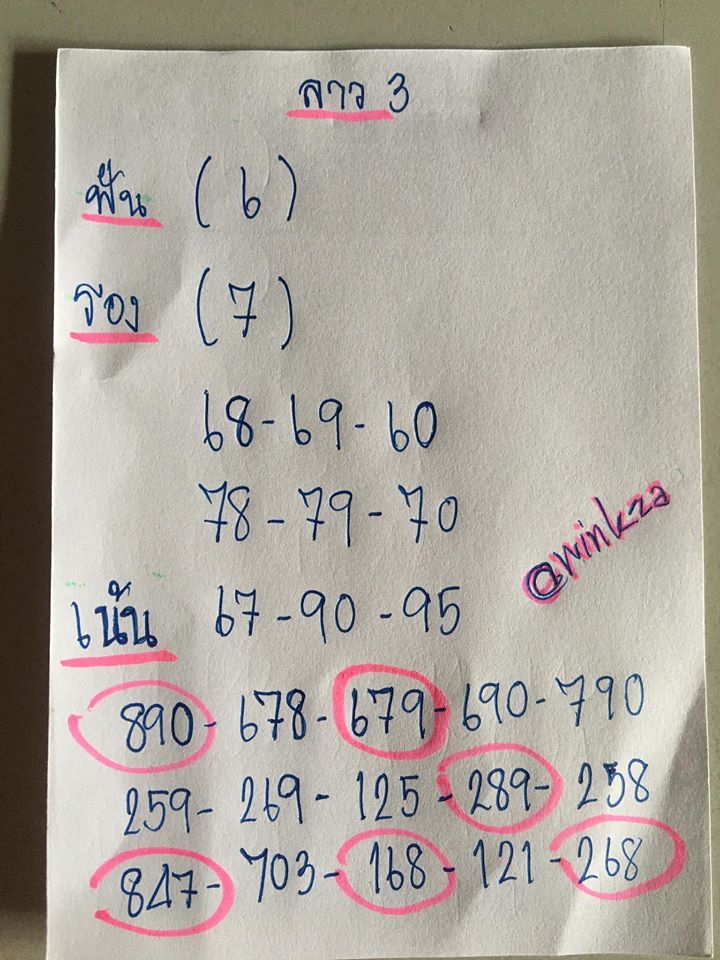 ลาว 3
ฟัน (6)
รอง (7)
68-69-60
78-79-70
@winkza
เน้น 67-90-95
890-678-679-690-790
259-269-125-289-258
847-703-168-121-268